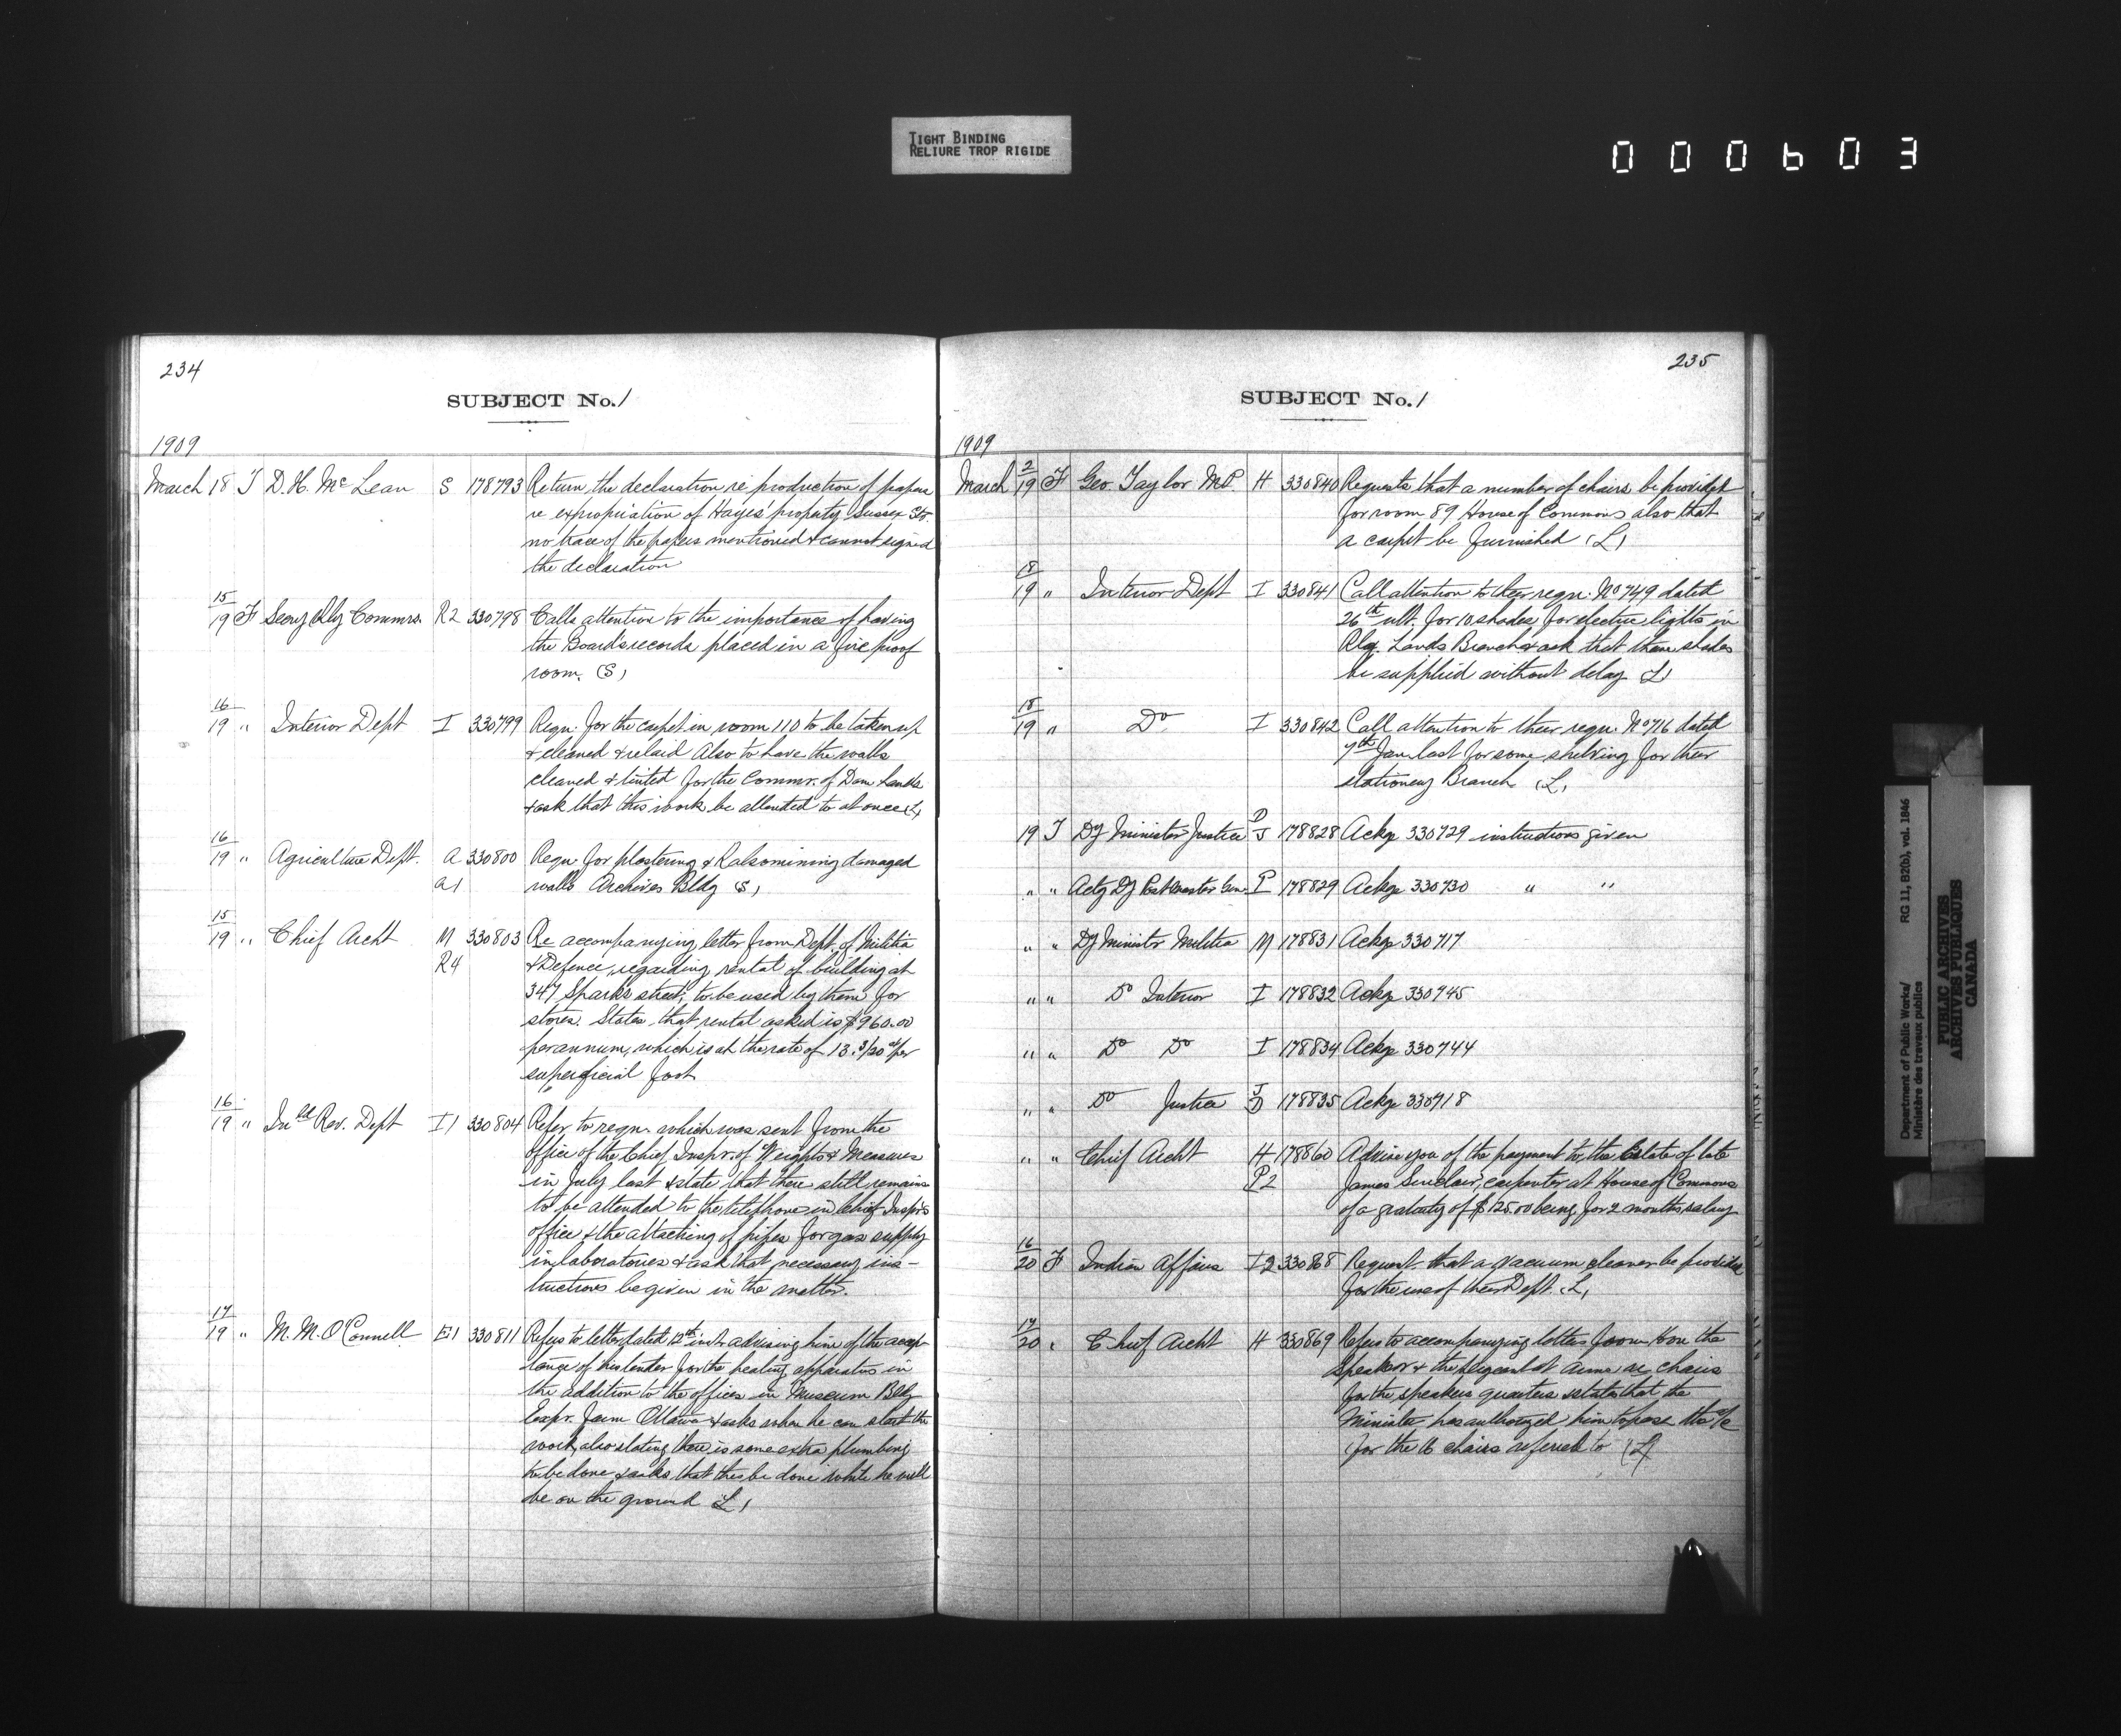 TIGHT BINDING
RELIURE TROP RIGIDE
000603
234
SUBJECT No. 1
1909
March 18 T D. H. McLean S 178793 Return the declaration re production of papers
re expropriation of Hayes' property Sussex St.
no trace of the papers mentioned & cannot signed
the declaration
15/19 F Secry Rly Commrs. R2 330798 Calls attention to the importance of having
the Board's records placed in a fire proof
room. (S)
16/19 " Interior Dept I 330799 Reqn. for the carpet in room 110 to be taken up
& cleaned & relaid Also to have the walls
cleaned & tinted for the Commr. of Dom Lands
& ask that this work be attended to at once (L)
16/19 " Agriculture Dept. A 330800 Reqn. for plastering & Kalsomining damaged
A1 walls Archives Bldg (S)
15/19 " Chief Archt M 330803 Re accompanying letter from Dept. of Militia
R4 & Defence, regarding rental of building at
347 Sparks street, to be used by them for
stores. States that rental asked is $960.00
per annum, which is at the rate of 13. 3/20 c/ per
superficial foot
16/19 " Inld Rev. Dept I1 330804 Refer to reqn. which was sent from the
office of the Chief Inspr. of Weights & Measures
in July last & state that there still remains
to be attended to the telephone in Chief Inspr's
office & the attaching of pipes for gas supply
in laboratories & ask that necessary ins-
tructions be given in the matter.
17/19 " M. M. O'Connell E1 330811 Refers to letter dated 12th inst advising him of the accep-
tance of his tender for the heating apparatus in
the addition to the offices in Museum Bldg
Expr. Farm Ottawa & asks when he can start the
work, also stating there is some extra plumbing
to be done & asks that this be done while he will
be on the ground (L)
235
SUBJECT No. 1
1909
March 2/19 F Geo. Taylor M.P. H 330840 Requests that a number of chairs be provided
for room 89 House of Commons also that
a carpet be furnished (L)
18/19 " Interior Dept I 330841 Call attention to their reqn. No 749 dated
26th ult. for 10 shades for electric lights in
Rly. Lands Branch & ask that these shades
be supplied without delay (L)
18/19 " Do I 330842 Call attention to their reqn. No 716 dated
7th Jan. last for some shelving for their
stationery Branch (L)
19 T Dy Minister Justice D J 178828 Ackg 330729 instructions given
" " Actg Dy Postmaster Gen. P 178829 Ackg 330730 " "
" " Dy Minister Militia M 178831 Ackg 330717
" " Do Interior I 178832 Ackg 330745
" " Do Do I 178834 Ackg 330744
" " Do Justice J D 178835 Ackg 330718
" " Chief Archt H 178860 Advise you of the payment to the Estate of late
P2 James Sinclair, carpenter at House of Commons
of a gratuity of $125.00 being for 2 months salary
16/20 F Indian Affairs I2 330868 Request that a vacuum cleaner be provided
for the use of their Dept. (L)
17/20 " Chief Archt H 330869 Refers to accompanying letters from Hon the
Speaker & the Sergeant at Arms re chairs
for the speakers quarters & states that the
Minister has authorized him to pass the a/c
for the 16 chairs referred to (L)
Department of Public Works/
Ministère des travaux publics
RG 11, B2(b), vol. 1846
PUBLIC ARCHIVES
ARCHIVES PUBLIQUES
CANADA